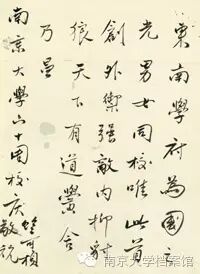 東南學府為國之
光男女同校唯此首
創外禦強敵內抑豺
狼天下有道黌舍
乃昌
南京大學六十周校慶
竺可楨
敬祝
南京大学档案馆